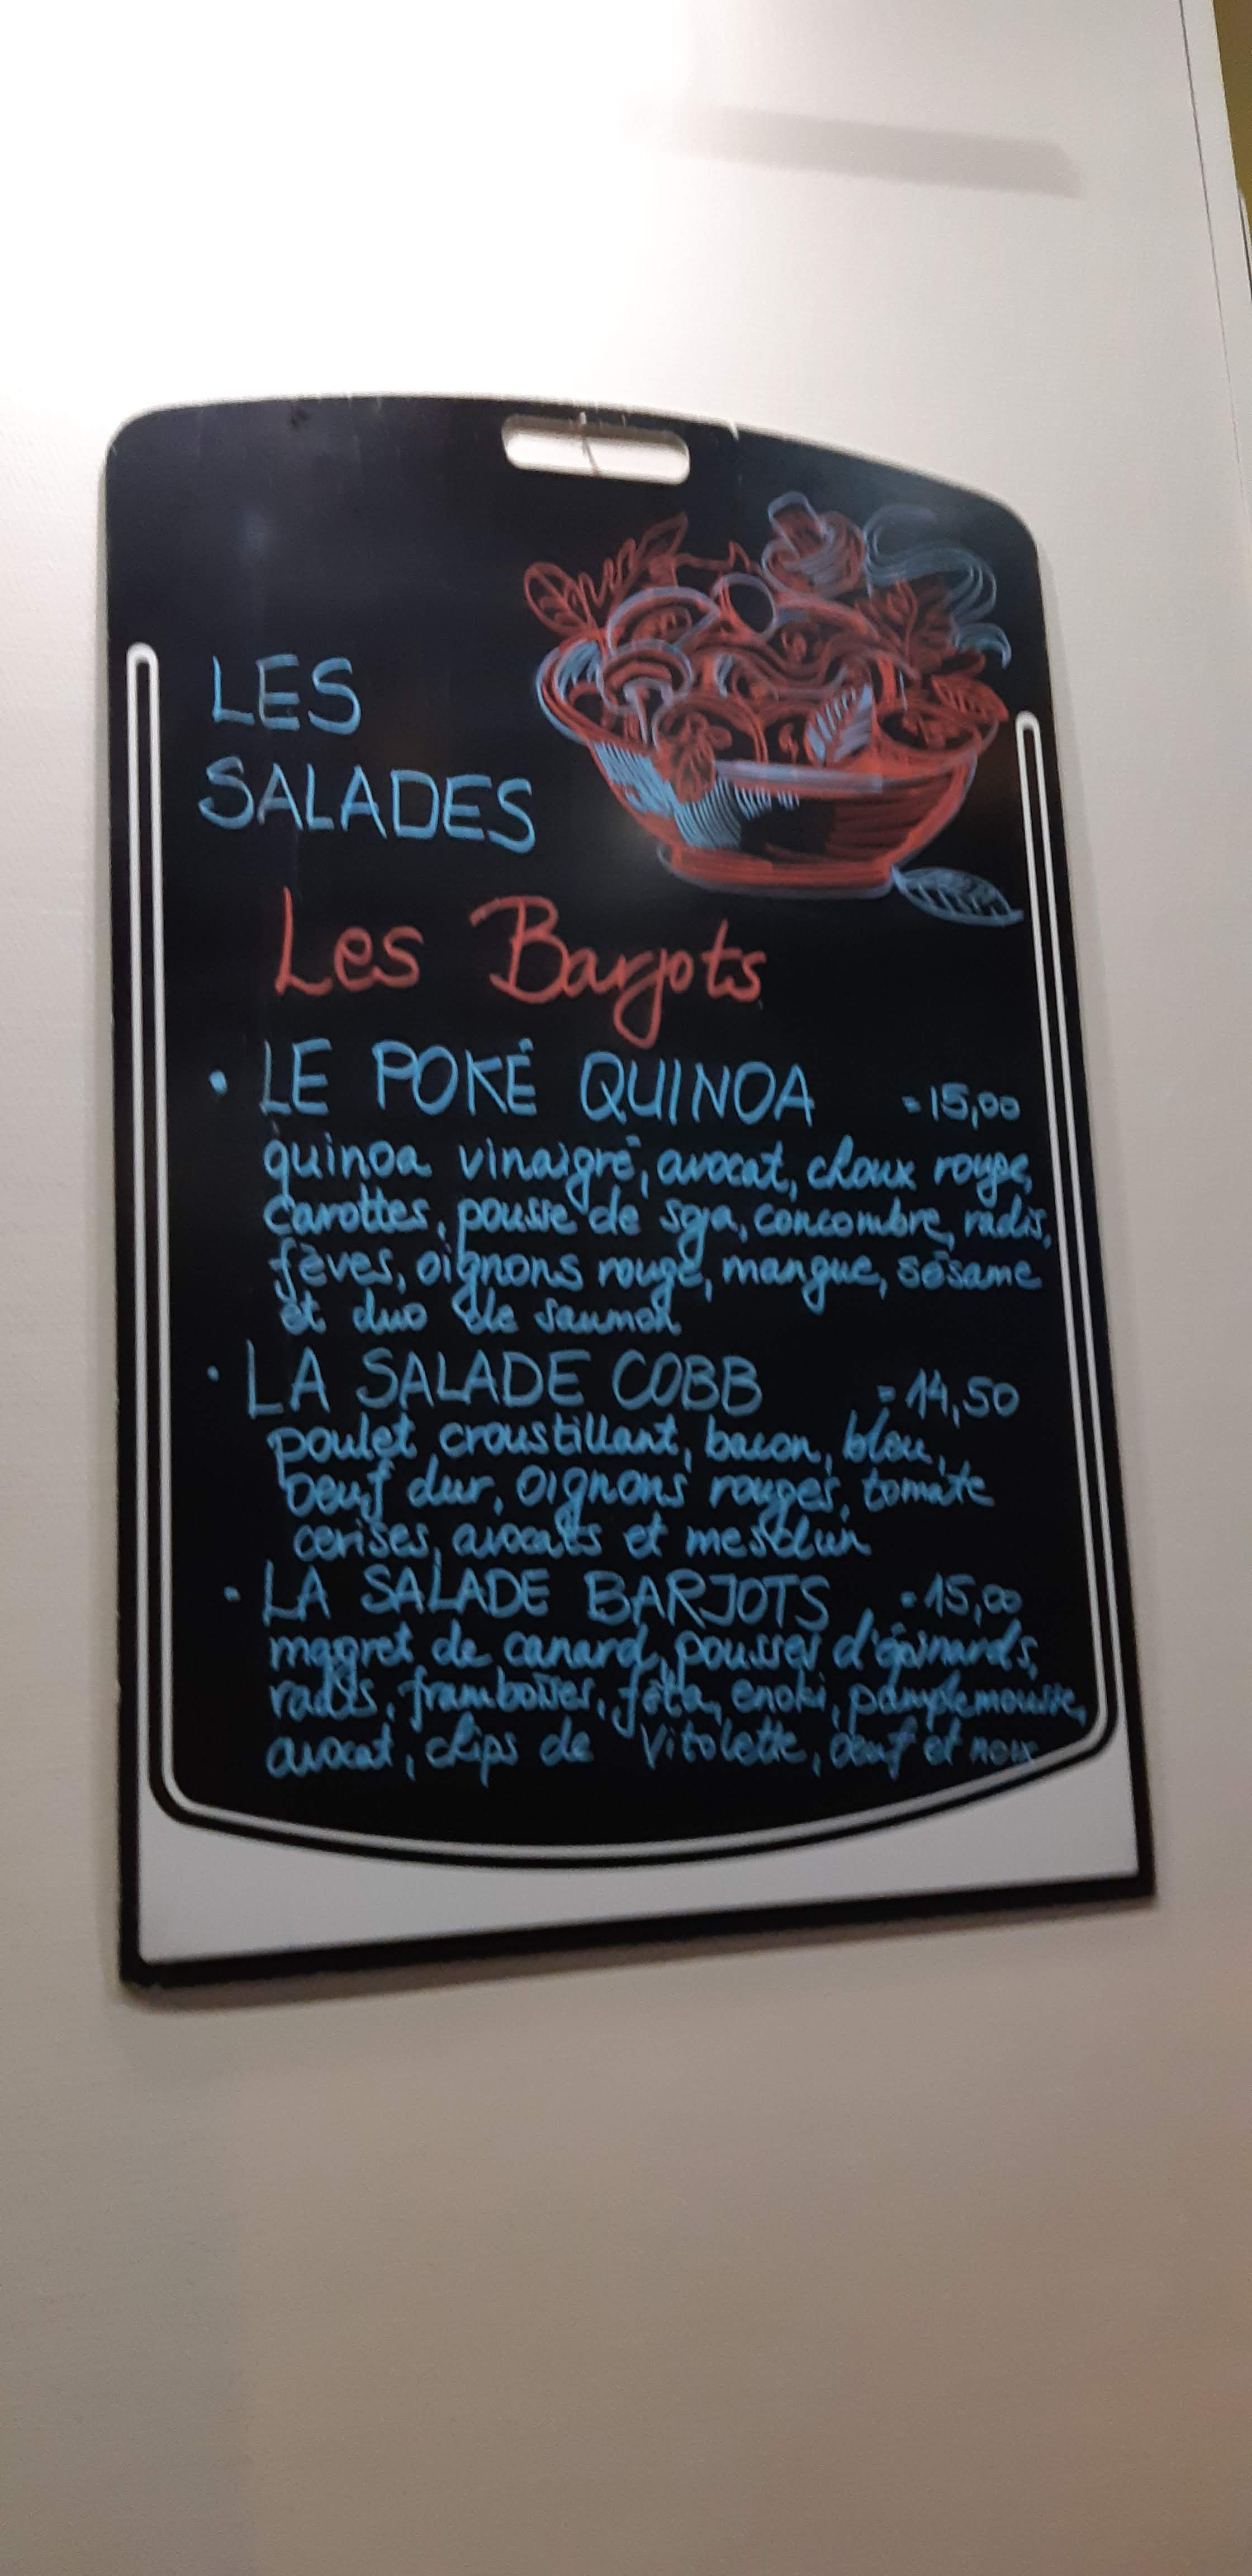 LES
SALADES
Les Barjots
• LE POKÉ QUINOA = 15,00
quinoa vinaigré, avocat, choux rouge,
carottes, pousse de soja, concombre, radis,
fèves, oignons rouge, mangue, sésame
et duo de saumon
• LA SALADE COBB = 14,50
poulet croustillant, bacon, bleu,
oeuf dur, oignons rouges, tomate
cerises, avocats et mesclun
• LA SALADE BARJOTS = 15,00
magret de canard, pousses d'épinards,
radis, framboises, féta, enoki, pamplemousse,
avocat, chips de Vitolette, oeuf et noix